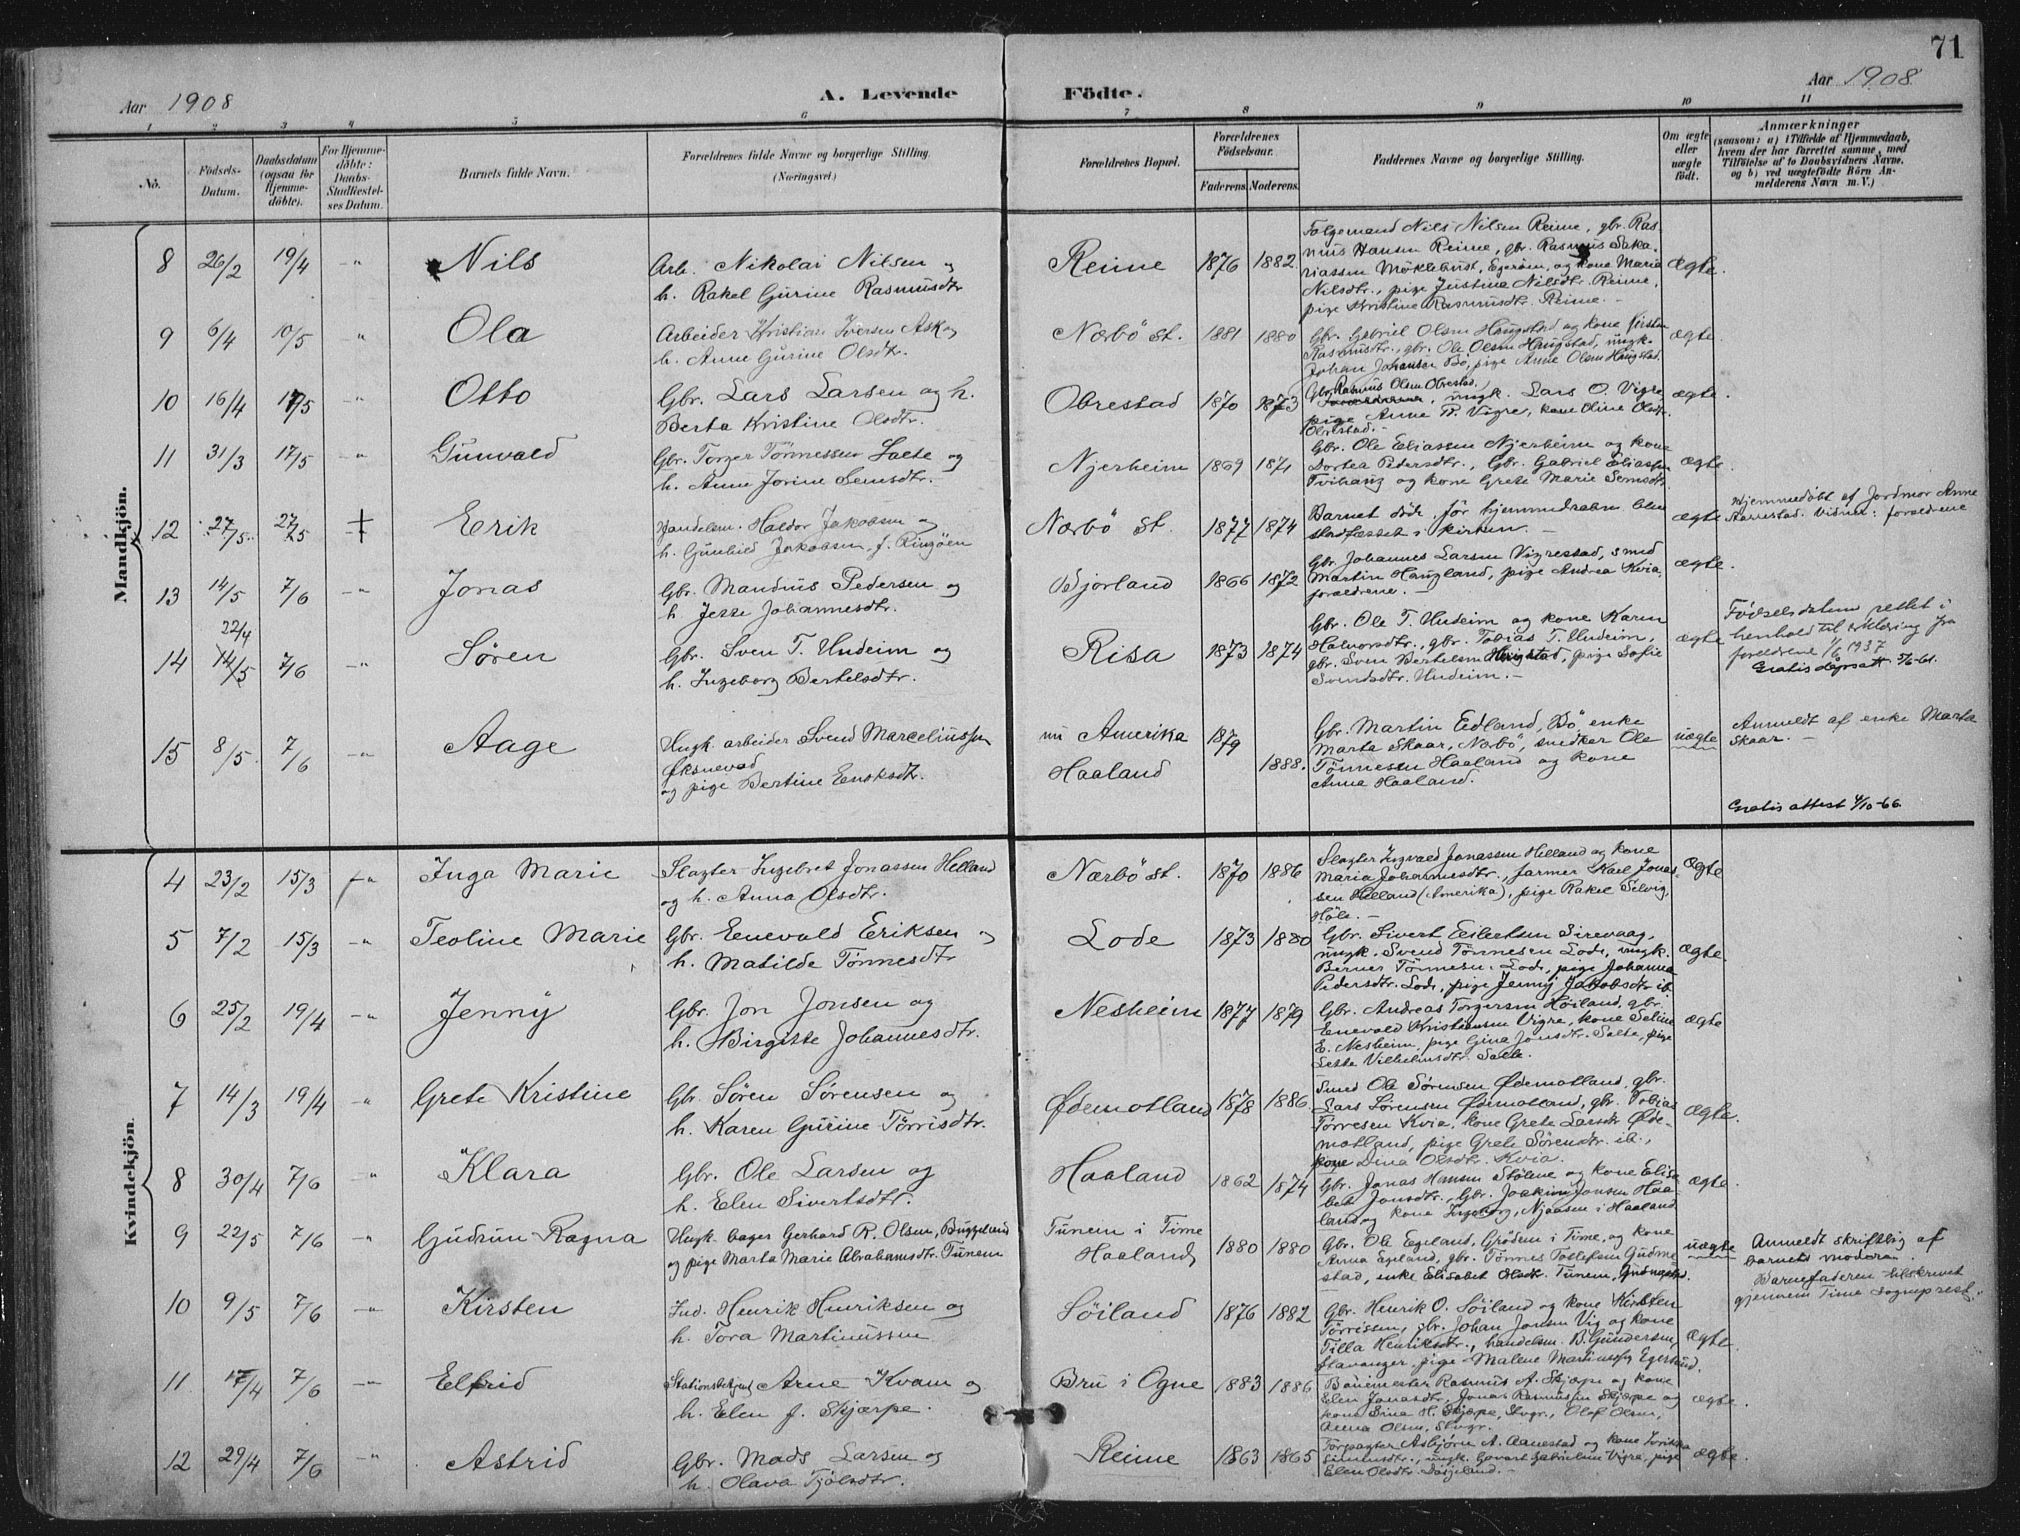 71
Aar 1908
A. Levende Födte.
Aar 1908
1 2 3 4 5 6 7 8 9 10 11
No.
Födsels-Datum.
Daabsdatum (ogsaa for Hjemme-döbte).
For Hjemme-döbte: Daabs-Stadfæstel-ses Datum.
Barnets fulde Navn.
Forældrenes fulde Navne og borgerlige Stilling. (Næringsvei.)
Forældrenes Bopæl.
Forældrenes Födselsaar.
Faderens. Moderens.
Faddernes Navne og borgerlige Stilling.
Om ægte eller uægte födt.
Anmærkninger
(saasom: a) i Tilfælde af Hjemmedaab, hvem der har forrettet samme, med Tilföielse af to Daabsvidners Navne, og b) ved uægtefödte Börn An-melderens Navn m. V.)
Mandkjön.
8 26/2 19/4 -"- Nils
Arb. Nikolai Nilsen og
h. Rakel Gurine Rasmusdtr
Reime 1876 1882
Folgemand Nils Nilsen Reime, gbr. Ras-
mus Hansen Reime, gbr. Rasmus Saka-
riassen Möklebust, Egeröen, og kone Maria
Nilsdtr., pige Justine Nilsdtr. Reime,
pige Kristine Rasmusdtr. Reime. -
ægte.
9 6/4 10/5 -"- Ola
Arbeider Kristian Iversen Ask og
h. Anne Gurine Olsdtr.
Nærbö st. 1881 1880
Gbr. Gabriel Olsen Haugstad og kone Kirsten
Rasmusdtr., gbr. Ole Olsen Haugstad, ungk.
Johan Johansen Bö, pige Anne Olsen Haugstad.
ægte.
10 16/4 17/5 -"- Otto
Gbr. Lars Larsen og h.
Berta Kristine Olsdtr.
Obrestad 1870 1873
Gbr. Rasmus Olsen Obrestad,
ungk. Lars O. Vigre
pige Anne R. Vigre, kone Oline Olsdt.
Obrestad. -
ægte.
11 31/3 17/5 -"- Gunvald
Gbr. Torger Tönnessen Salte og
h. Anne Jorine Semsdtr.
Njerheim 1869 1871
Gbr. Ole Eliassen Njerheim og kone
Dortea Pedersdtr., Gbr. Gabriel Eliassen
Tvihaug og kone Grete Marie Semsdtr.
ægte.
12 27/5 27/5 Erik
Handelsm. Haldor Jakobsen og
h. Gunhild Jakobsen f. Ringöen
Nærbö St. 1877 1874
Barnet döde för hjemmedaaben blev
stadfæstet i kirken. -
ægte.
Hjemmedöbt af Jordmor Anne
Aarrestad. Vidner: forældrene
13 14/5 7/6 -"- Jonas
Gbr. Mandius Pedersen og
h. Jesse Johannesdtr.
Bjorland 1866 1872
Gbr. Johannes Larsen Vigrestad, smed
Martin Haugland, pige Andrea Kvia,
forældrene. -
ægte.
14 22/4 14/5 7/6 -"- Sören
Gbr. Sven T. Undeim og
h. Ingeborg Bertelsdtr.
Risa 1873 1874
Gbr. Ole T. Undeim og kone Karen
Halvorsdtr., gbr. Tobias T. Undeim,
gbr. Sven Bertelsen Haugstad, pige Sofie
Svendsdtr. Undeim. -
ægte
Födselsdatum rettet i
henhold til erklæring fra
foreldrene 1/6 1937
Gratis dåpsatt. 5/6-61.
15 8/5 7/6 -"- Aage
Ungk. arbeider Svend Marceliussen
Öksnevad
og pige Bertine Enoksdtr.
nu Amerika
Haaland
1879 1888.
Gbr. Martin Edland, Bö, enke
Marta Skaar, Nærbö, snedker Ole
Tönnesen Haaland og kone
Anna Haaland.
uægte
Anmeldt af enke Marta
Skaar. -
Gratis attest 4/10-66.
Kvindekjön.
4 23/2 15/3 -"- Inga Marie
Slagter Ingebret Jonassen Helland
og h. Anna Olsdtr.
Nærbö st. 1870 1886
Slagter Ingvald Jonassen Helland og kone
Maria Johannesdtr., farmer Karl Jonas-
sen Helland (Amerika), pige Rakel Selvig,
Höle. -
Ægte
5 7/2 15/3 -"- Teoline Marie
Gbr. Enevald Eriksen og
h. Matilde Tönnesdtr
Lode 1873 1880
Gbr. Sivert Eilertsen Sirevaag,
ungk. Svend Tönnesen Lode, ungk.
Berner Tönnesen Lode, pige Johanna
Pedersdtr. Lode, pige Jenny Jakobsdtr ib.
ægte.
6 25/2 19/4 -"- Jenny
Gbr. Jon Jonsen og
h. Birgitte Johannesdtr.
Nesheim 1877 1879
Gbr. Andreas Torgersen Höiland, gbr.
Enevald Kristiansen Vigre, kone Seline
E. Nesheim, pige Gina Jonsdtr. Salte, pige
Sette Vilhelmsdtr. Salte.
ægte
7 14/3 19/4 -"- Grete Kristine
Gbr. Sören Sörensen og
h. Karen Gurine Törrisdtr.
Ödemotland 1878 1886
Smed Ole Sörensen Ödemotland, gbr.
Lars Sörensen Ödemotland, gbr. Tobias
Törresen Kvia, kone Grete Larsdtr Öde-
motland, pige Grete Sörensdtr. ib.,
kone Dina Olsdtr. Kvia.
ægte.
8 30/4 7/6 -"- Klara
Gbr. Ole Larsen og
h. Elen Sivertsdtr.
Haaland 1862 1874
Gbr. Jonas Hansen Stölene og kone Elisa-
bet Jonsdtr., Gbr. Joakim Jonsen Haa-
land og kone Ingeborg, Njaasen i Haaland
ægte.
9 22/5 7/6 -"- Gudrun Ragna
Ungk. bager Gerhard R. Olsen, Buggeland
og pige Marta Marie Abrahamsdtr. Tunem
Tunem i Time
Haaland,
1880 1880
Gbr. Ole Egeland, Gröden i Time, og kone
Anna Egeland, gbr. Tönnes Tollefsen Gudme-
stad, enke Elisabet Olsdtr. Tunem, Gudmestad.
uægte
Anmeldt skriftlig af
barnets moder.
Barnefaderen tilskrevet
gjennem Time sogneprest.
10 9/5 7/6 -"- Kirsten
Ind. Henrik Henriksen og
h. Tora Martinussen
Söiland 1876 1882
Gbr. Henrik O. Söiland og kone Kirsten
Törrissen, gbr. Johan Jonsen Vig og kone
Tilla Henriksdtr., handelsm. B. Gundersen,
Stavanger, pige Malene Martinussen Egersund.
ægte.
11 17/4 7/6 -"- Elfrid
Stationsbetjent Arne Kvam og
h. Elen f. Skjærpe.
Bru i Ogne 1883 1886
Banemester Rasmus A. Skjærpe og kone
Elen Jonasdtr, Jonas Rasmussen Skjærpe og
kone Sina H. Skjærpe, Stvgr., Olof Olsen,
Anna Olsen, Stvgr.
ægte.
12 29/4 7/6 -"- Astrid
Gbr. Mads Larsen og
h. Olava Tjölsdtr.
Reime 1863 1865
Forpagter Asbjörn A. Aanestad og kone
Simonsdtr., ungk. Govart Gabrielsen Vigre, pige
Elen Olsdtr. Dasjeland. -
ægte.